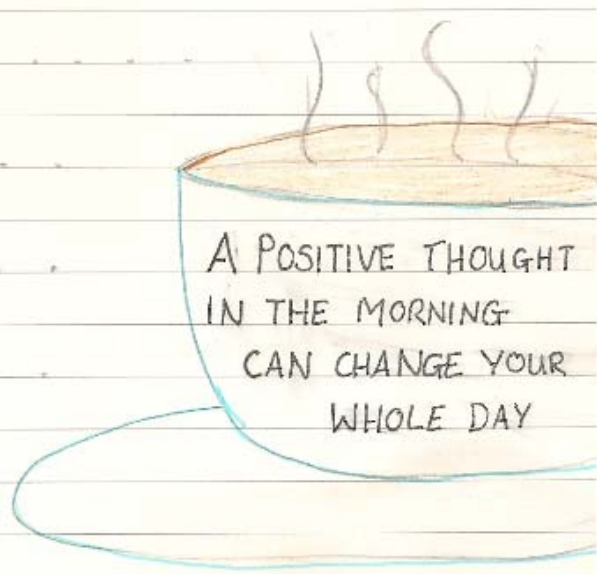 A POSITIVE THOUGHT
IN THE MORNING
CAN CHANGE YOUR
WHOLE DAY